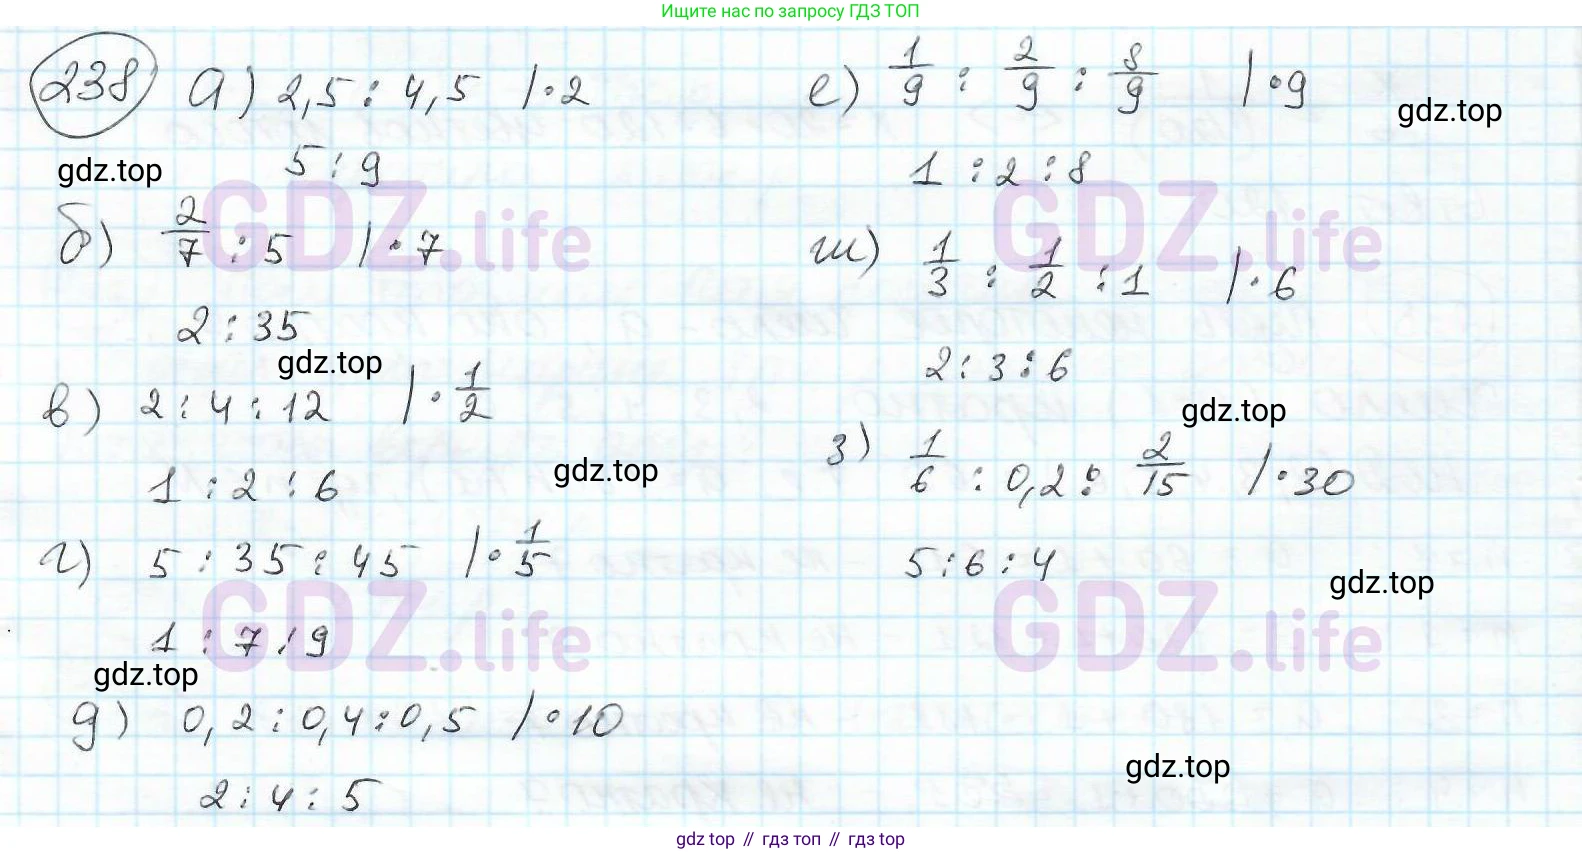 Ищите нас по запросу ГДЗ ТОП
238 а) 2,5 : 4,5 | · 2
5 : 9
gdz.top
б) 2/7 : 5 | · 7
2 : 35
gdz.top
в) 2 : 4 : 12 | · 1/2
1 : 2 : 6
gdz.top
г) 5 : 35 : 45 | · 1/5
1 : 7 : 9
gdz.top
д) 0,2 : 0,4 : 0,5 | · 10
2 : 4 : 5
е) 1/9 : 2/9 : 8/9 | · 9
gdz.top
1 : 2 : 8
ж) 1/3 : 1/2 : 1 | · 6
2 : 3 : 6
gdz.top
з) 1/6 : 0,2 : 2/15 | · 30
5 : 6 : 4
gdz.top
gdz.top
GDZ.life
GDZ.life
GDZ.life
GDZ.life
gdz top // гдз топ // gdz top